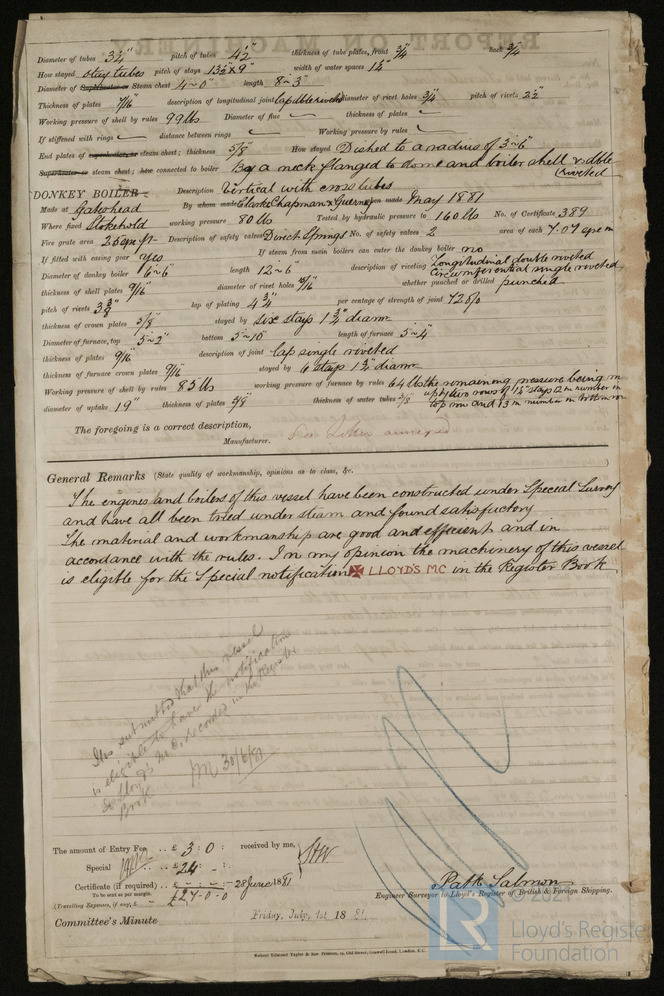 Diameter of tubes 3¼" pitch of tubes 4½" thickness of tube plates, front ¾" back ¾"
How stayed stay tubes pitch of stays 13½" x 9" width of water spaces 1¼"
Diameter of Superheater or Steam chest 4~0" length 8~3"
Thickness of plates 7/16 description of longitudinal joint lap dble rivetd diameter of rivet holes ¾ pitch of rivets 2½
Working pressure of shell by rules 99 lbs Diameter of flue thickness of plates
If stiffened with rings distance between rings Working pressure by rules
End plates of superheater, or steam chest; thickness 5/8 How stayed Dished to a radius of 3~6
Superheater or steam chest; how connected to boiler By a neck flanged to dome and boiler shell & dble riveted
DONKEY BOILER— Description Vertical with cross tubes
Made at Gateshead By whom made Clarke Chapman & Gurney when made May 1881
Where fixed Stokehold working pressure 80 lbs Tested by hydraulic pressure to 160 lbs No. of Certificate 389
Fire grate area 26 sqr ft Description of safety valves Direct Springs No. of safety valves 2 area of each 7.07 sqe in
If fitted with easing gear yes If steam from main boilers can enter the donkey boiler no
Diameter of donkey boiler 6~6 length 12~6 description of riveting Longitudinal double riveted Circumferential single riveted
thickness of shell plates 9/16 diameter of rivet holes whether punched or drilled punched
pitch of rivets lap of plating 4¾ per centage of strength of joint 72 o/o
thickness of crown plates 5/8 stayed by six stays 1¾ diamr
Diameter of furnace, top 5~2" bottom 5~10 length of furnace 5~4"
thickness of plates 9/16 description of joint lap single riveted
thickness of furnace crown plates 9/16 stayed by 6 stays 1¾ diamr
Working pressure of shell by rules 83 lbs working pressure of furnace by rules 64 lbs the remaining pressure being on
diameter of uptake 19" thickness of plates 3/8 thickness of water tubes 3/8 two rows of 1¼" stays 12 in number in top row and 13 in number in bottom row
The foregoing is a correct description,
Manufacturer. See Letter annexed
General Remarks (State quality of workmanship, opinions as to class, &c.
The engines and boilers of this vessel have been constructed under Special Survey
and have all been tried under steam and found satisfactory
The material and workmanship are good and efficient and in
accordance with the rules. In my opinion the machinery of this vessel
is eligible for the Special notification ✠ LLOYD'S MC in the Register Book
It is submitted that this vessel
is eligible to have the notification
✠ Lloyd's M.C. recorded in the Register
Book
30/6/81
The amount of Entry Fee .. £ 3 : 0 : received by me,
Special .. £ 24 : - :
Certificate (if required) .. £ - : - : - 28 June 1881
To be sent as per margin.
(Travelling Expenses, if any, £ £27-0-0
Patk Salmon
Engineer Surveyor to Lloyd's Register of British & Foreign Shipping.
Committee's Minute Friday, July, 1st 18 81.
Robert Edmund Taylor & Son Printers, 19, Old Street, Goswell Road, London, E.C.
© 2021
Lloyd's Register
Foundation